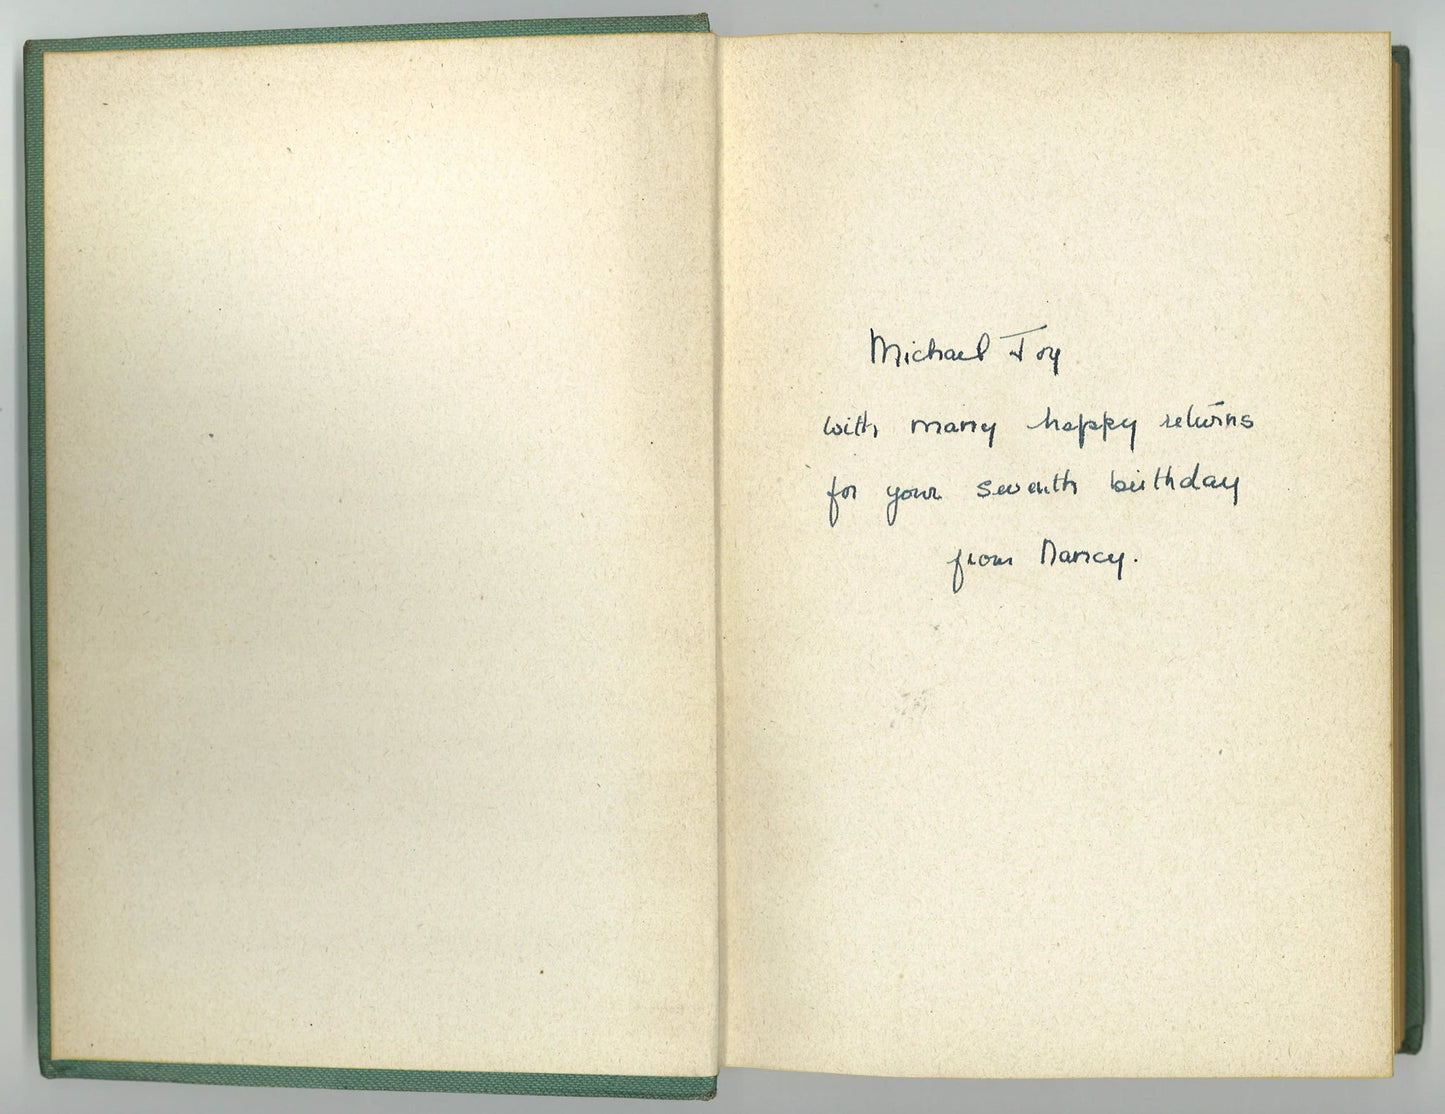 Michael Joy
with many happy returns
for your seventh birthday
from Nancy.